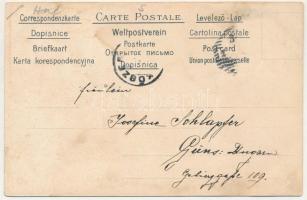 CARTE POSTALE
Correspondenzkarte
Levelező-Lap
Dopisnice
Weltpostverein
Cartolina postale
Briefkaart
Postkarte
Post card
Karta korespondencyjna
ОТКРЫТОЕ ПИСЬМО
Union postale universelle
Dopisnica
Fräulein
Josefine Schlapfer
Güns
109.